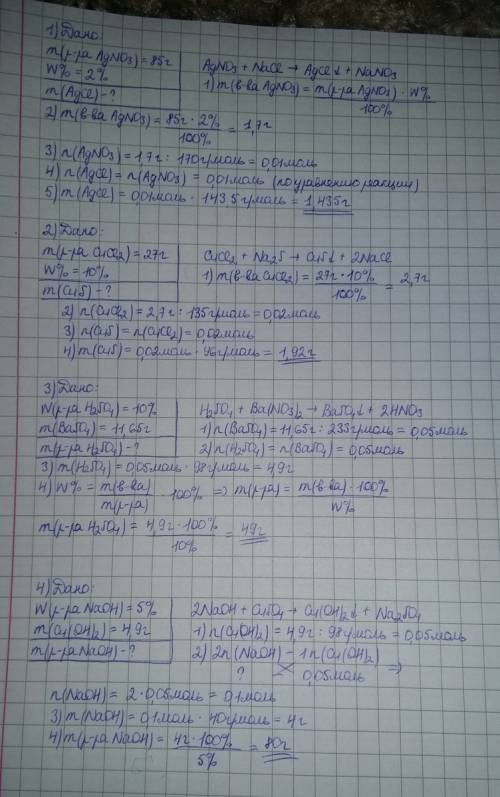 1) Дано:
m(р-ра AgNO3) = 85г
W% = 2%
m(AgCl) - ?
AgNO3 + NaCl → AgCl↓ + NaNO3
1) m(в-ва AgNO3) = m(р-ра AgNO3) · W% / 100%
2) m(в-ва AgNO3) = 85г · 2% / 100% = 1,7г
3) n(AgNO3) = 1,7г : 170г/моль = 0,01моль
4) n(AgCl) = n(AgNO3) = 0,01моль (по уравнению реакции)
5) m(AgCl) = 0,01моль · 143,5г/моль = 1,435г
2) Дано:
m(р-ра CuCl2) = 27г
W% = 10%
m(CuS) - ?
CuCl2 + Na2S → CuS↓ + 2NaCl
1) m(в-ва CuCl2) = 27г · 10% / 100% = 2,7г
2) n(CuCl2) = 2,7г : 135г/моль = 0,02моль
3) n(CuS) = n(CuCl2) = 0,02моль
4) m(CuS) = 0,02моль · 96г/моль = 1,92г
3) Дано:
W(р-ра H2SO4) = 10%
m(BaSO4) = 11,65г
m(р-ра H2SO4) - ?
H2SO4 + Ba(NO3)2 → BaSO4↓ + 2HNO3
1) n(BaSO4) = 11,65г : 233г/моль = 0,05моль
2) n(H2SO4) = n(BaSO4) = 0,05моль
3) m(H2SO4) = 0,05моль · 98г/моль = 4,9г
4) W% = m(в-ва) / m(р-ра) · 100% => m(р-ра) = m(в-ва) · 100% / W%
m(р-ра H2SO4) = 4,9г · 100% / 10% = 49г
4) Дано:
W(р-ра NaOH) = 5%
m(Cu(OH)2) = 4,9г
m(р-ра NaOH) - ?
2NaOH + CuSO4 → Cu(OH)2↓ + Na2SO4
1) n(Cu(OH)2) = 4,9г : 98г/моль = 0,05моль
2) 2n(NaOH) - 1n(Cu(OH)2)
? 0,05моль =>
n(NaOH) = 2 · 0,05моль = 0,1моль
3) m(NaOH) = 0,1моль · 40г/моль = 4г
4) m(р-ра NaOH) = 4г · 100% / 5% = 80г